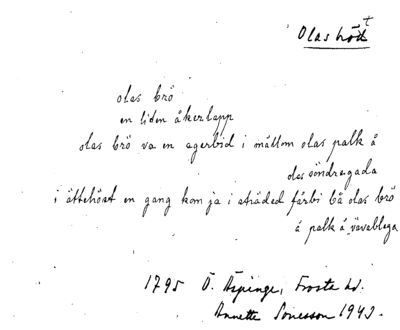 Olas bröt
olas brö
en liden åkerlapp
olas brö va en agerbid i mällom olas palk å
olas söndragada
i ättehöst en gang kom ja i stråded färbi bå olas brö
å palk å väveblega
1795 Ö. Äspinge, Frosta hd.
Annette Sonesson 1943.